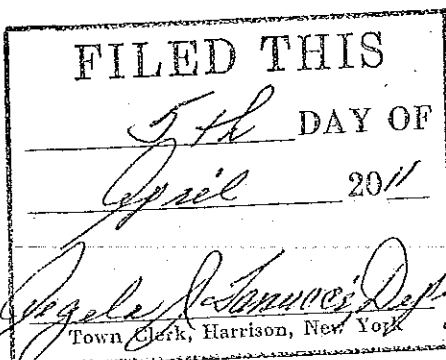 FILED THIS
5th DAY OF
April 2011
Angela Dep
Town Clerk, Harrison, New York